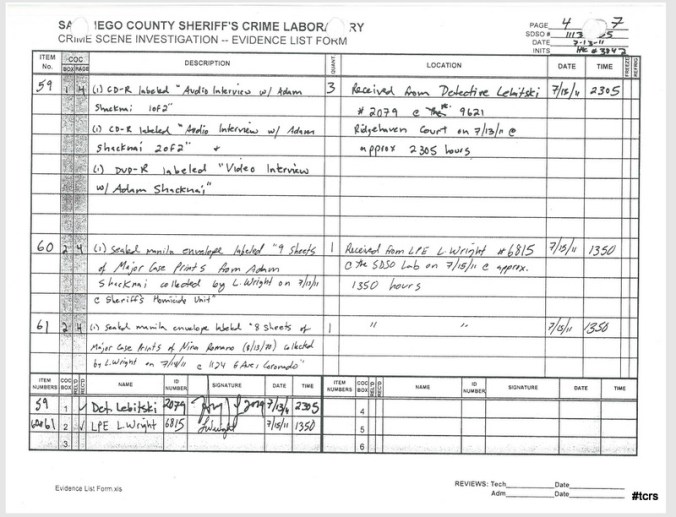 SA IEGO COUNTY SHERIFF'S CRIME LABORA RY
CRIME SCENE INVESTIGATION -- EVIDENCE LIST FORM
PAGE 4 7
SDSO # 1113 5
DATE 7-13-11
INITS # 3042
ITEM No. COC BOX PAGE DESCRIPTION QUANT LOCATION DATE TIME FREEZE REFRIG
59 1 4 (1) CD-R labeled "Audio Interview w/ Adam 3 Received from Detective Lebitski 7/13/11 2305
Shacknai 1of2" # 2079 @ the 9621
(1) CD-R labeled "Audio Interview w/ Adam Ridgehaven Court on 7/13/11 @
Shacknai 2of2" + approx 2305 hours
(1) DVD-R labeled "Video Interview
w/ Adam Shacknai"
60 2 4 (1) Sealed manila envelope labeled "9 Sheets 1 Received from LPE L. Wright #6815 7/15/11 1350
of Major Case Prints from Adam @ the SDSO Lab on 7/15/11 @ approx.
Shacknai collected by L. Wright on 7/13/11 1350 hours
@ Sheriff's Homicide Unit"
61 2 4 (1) Sealed manila envelope labeled "8 Sheets of 1 " " 7/15/11 1350
Major Case Prints of Nina Romano collected
by L. Wright on 7/14/11 @ 1124 Coronado"
ITEM NUMBERS COC BOX REL'D REC'D NAME ID NUMBER SIGNATURE DATE TIME ITEM NUMBERS COC BOX REL'D REC'D NAME ID NUMBER SIGNATURE DATE TIME
59 1 ✓ Det. Lebitski 2079 7/13/11 2305 4
60&61 2 ✓ LPE L. Wright 6815 LWright 7/15/11 1350 5
3 6
Evidence List Form.xls
REVIEWS: Tech Date
Adm Date
#tcrs